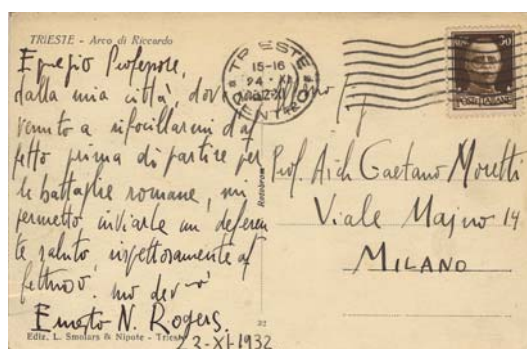 TRIESTE - Arco di Riccardo
Egregio Professore,
dalla mia città, dove sono
venuto a rifocillarmi d'af
fetto prima di partire per
le battaglie romane, mi
permetto inviarle un deferen
te saluto, rispettosamente af
fettuoso. suo dev
Ernesto N. Rogers.
Ediz. L. Smolars & Nipote - Trieste
23-XI-1932
22
Rotobrom
TRIESTE
15-16
24 - XI
CENTRO
POSTE ITALIANE
Prof. Arch Gaetano Moretti
Viale Majno 14
MILANO